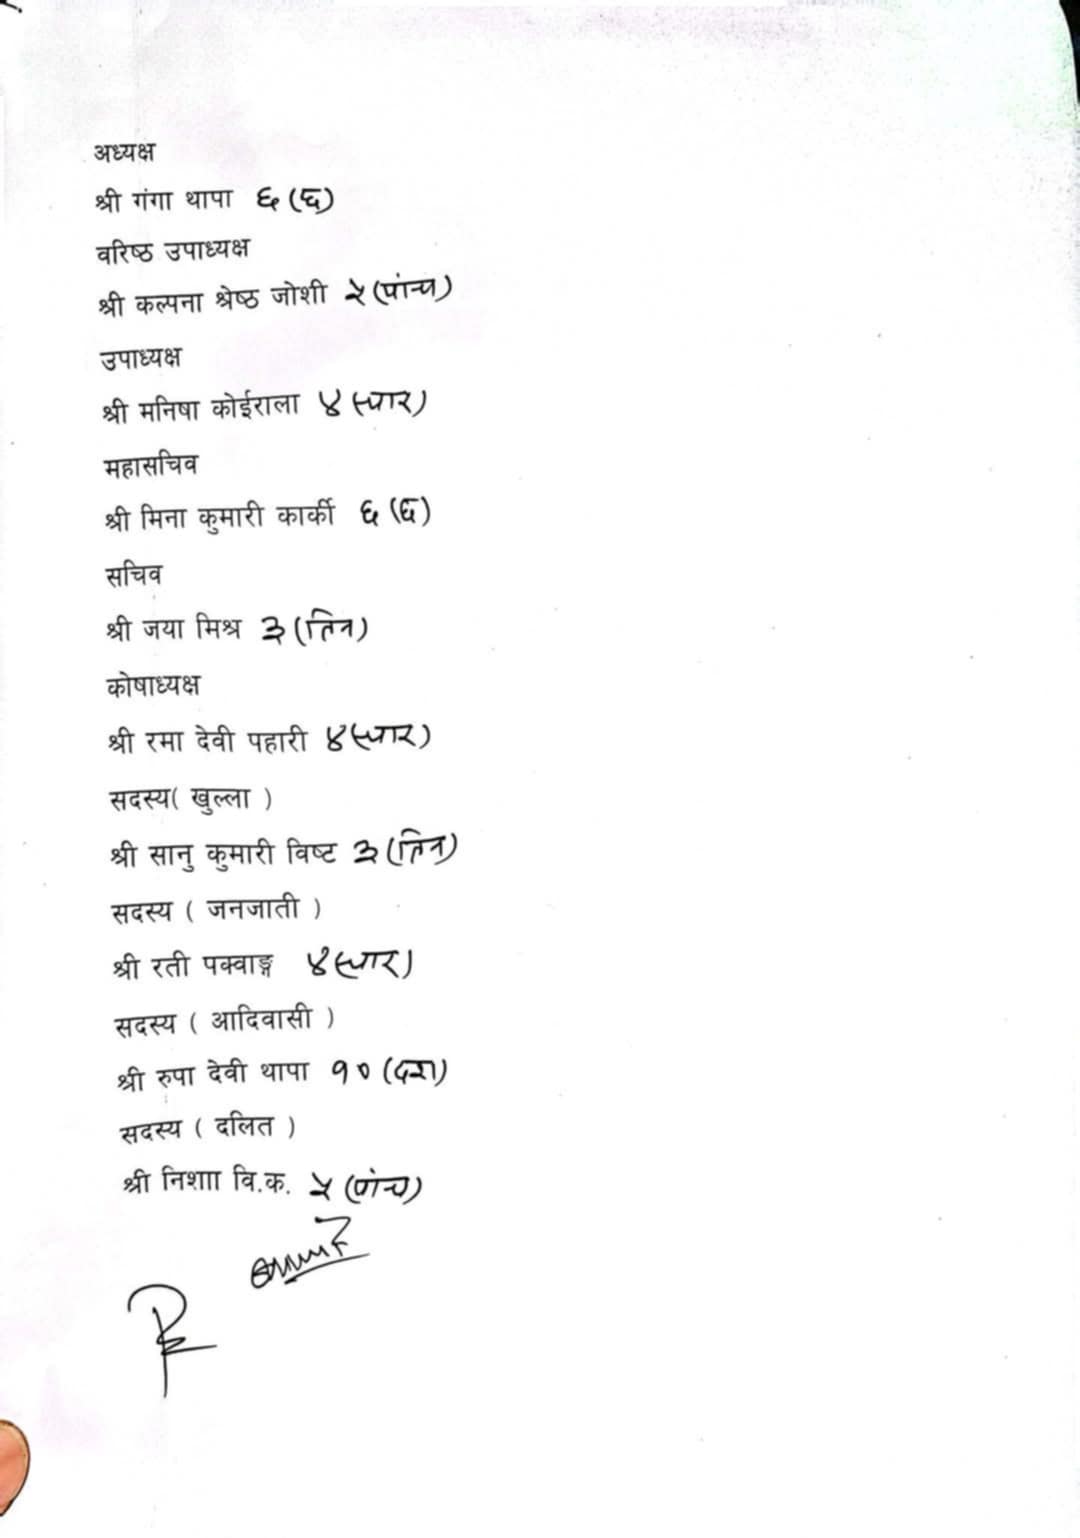 अध्यक्ष
श्री गंगा थापा ६ (छ)
वरिष्ठ उपाध्यक्ष
श्री कल्पना श्रेष्ठ जोशी ५ (पांच)
उपाध्यक्ष
श्री मनिषा कोईराला ४ (चार)
महासचिव
श्री मिना कुमारी कार्की ६ (छ)
सचिव
श्री जया मिश्र ३ (तिन)
कोषाध्यक्ष
श्री रमा देवी पहारी ४ (चार)
सदस्य( खुल्ला )
श्री सानु कुमारी विष्ट ३ (तिन)
सदस्य ( जनजाती )
श्री रती पक्वाङ्ग ४ (चार)
सदस्य ( आदिवासी )
श्री रुपा देवी थापा १० (दश)
सदस्य ( दलित )
श्री निशाा वि.क. ५ (पांच)